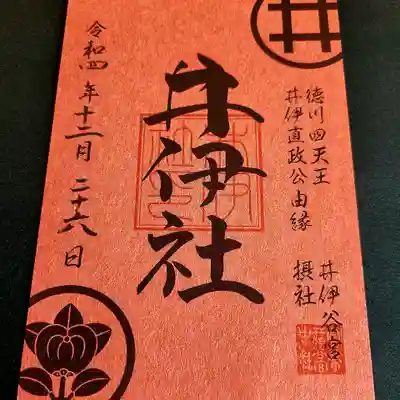 徳川四天王
井伊直政公由緣
井伊谷宮
摂社
井伊社
令和四年十二月二十六日